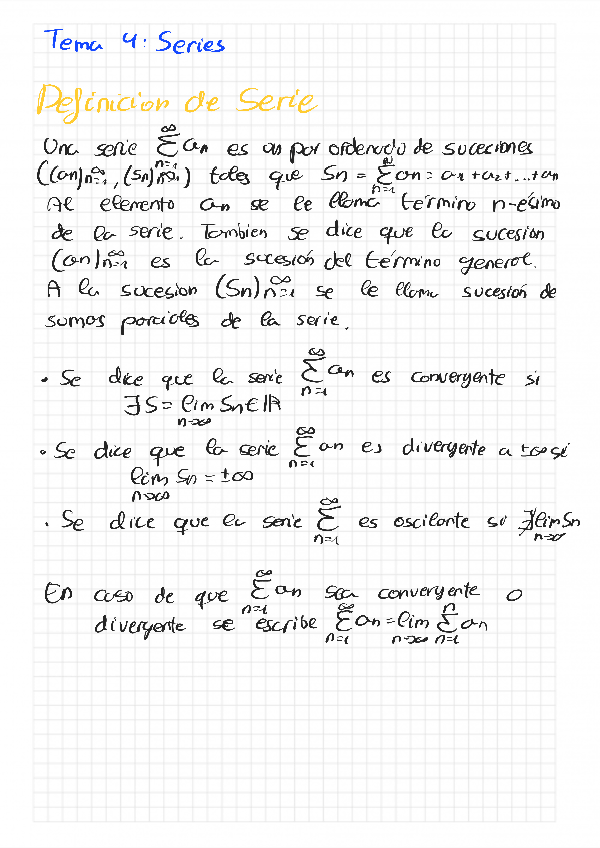 Tema 4: Series
Definicion de Serie
Una serie ∑_{n=1}^{∞} an es un par ordenado de sucesiones
((an)_{n=1}^{∞}, (Sn)_{n=1}^{∞}) tales que Sn = ∑_{n=1}^{N} an = a1 + a2 + ... + an
Al elemento an se le llama término n-ésimo
de la serie. Tambien se dice que la sucesion
(an)_{n=1}^{∞} es la sucesión del término general.
A la sucesion (Sn)_{n=1}^{∞} se le llama sucesión de
sumas parciales de la serie.
• Se dice que la serie ∑_{n=1}^{∞} an es convergente si
∃ S = lim_{n→∞} Sn ∈ ℝ
• Se dice que la serie ∑_{n=1}^{∞} an es divergente a ±∞ si
lim_{n→∞} Sn = ±∞
• Se dice que la serie ∑_{n=1}^{∞} es oscilante si ∄ lim_{n→∞} Sn
En caso de que ∑_{n=1}^{∞} an sea convergente o
divergente se escribe ∑_{n=1}^{∞} an = lim_{n→∞} ∑_{n=1}^{n} an